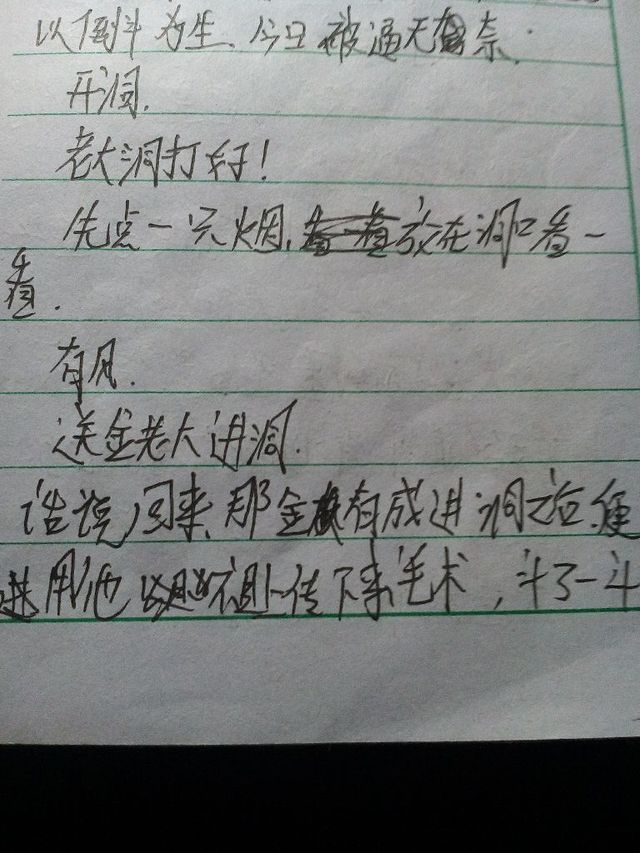 以倒斗为生、今日被逼无奈.
开洞.
老大洞打好!
先点一只烟,放在洞口看一
看.
有风.
送金老大进洞.
话说回来,那金有成进洞之后,便
进用他 传下来毛术,斗了一斗